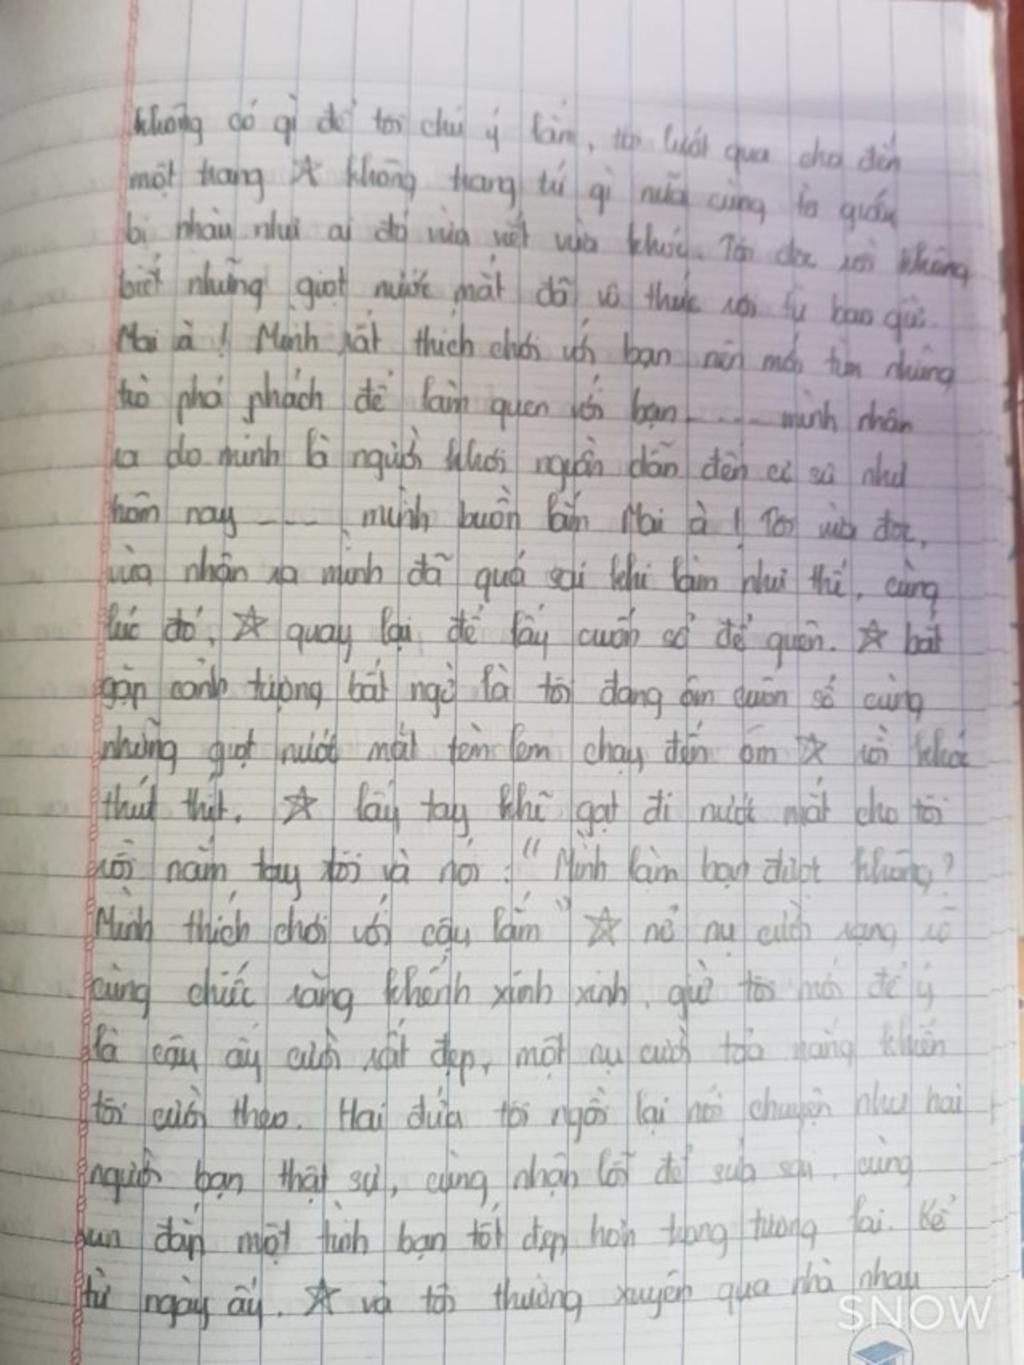 không có gì để tôi chú ý lắm, tôi lướt qua cho đến
một trang ☆ không trang trí gì nữa cùng tờ giấy
bị nhàu như ai đó vừa viết vừa khóc. Tôi đọc rồi không
biết những giọt nước mắt đổ vô thức rơi tự bao giờ.
Mai à! Mình rất thích chơi với bạn nên mới tìm những
trò phá phách để làm quen với bạn ---- mình nhận
ra do mình là người khơi nguồn dẫn đến cớ sự như
hôm nay ---- mình buồn lắm Mai à! Tôi vừa đọc,
vừa nhận ra mình đã quá sai khi làm như thế, cùng
lúc đó, ☆ quay lại để lấy cuốn sổ để quên. ☆ bắt
gặp cảnh tượng bất ngờ là tôi đang ôm cuốn sổ cùng
những giọt nước mắt tèm lem chạy đến ôm ☆ rồi khóc
thút thít. ☆ lấy tay khẽ gạt đi nước mắt cho tôi
rồi nắm tay tôi và nói: "Mình làm bạn được không?
Mình thích chơi với cậu lắm" ☆ nở nụ cười rạng rỡ
cùng chiếc răng khểnh xinh xinh, giờ tôi mới để ý
là cậu ấy cười rất đẹp, một nụ cười tỏa nắng khiến
tôi cười theo. Hai đứa tôi ngồi lại nói chuyện như hai
người bạn thật sự, cùng nhận lỗi để sửa sai, cùng
vun đắp một tình bạn tốt đẹp hơn trong tương lai. Kể
từ ngày ấy, ☆ và tôi thường xuyên qua nhà nhau
SNOW